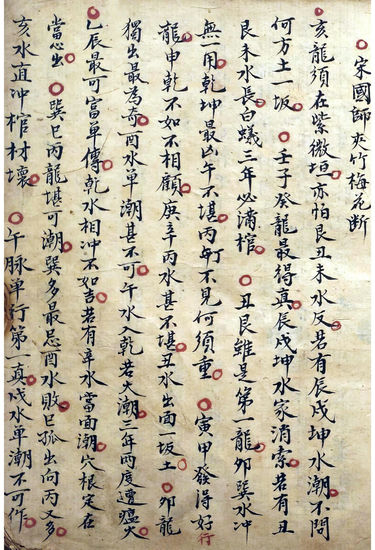 宋國師夾竹梅花斷
亥龍須在紫微垣亦怕艮丑未水反若有辰戌坤水潮不問
何方土一坂 壬子癸龍最得真辰戌坤水家消索若有丑
艮未水長白蟻三年必滿棺 丑艮雖是第一龍夘巽水冲
無一用乾坤最凶午不堪丙丁不見何須重 寅甲發得好行
龍申乾不如不相顧庚辛丙水甚不堪丑水出面一坂土 夘龍
獨出最為奇酉水單潮甚不可午水入乾若大潮三年兩度遭瘟火
乙辰最可富單傳乾水相冲不如言若有辛水當面潮穴根定在
當心出 巽巳丙龍堪可潮巽多最忌酉水敗巳孤出向丙又多
亥水直冲棺材壞 午脉單行第一真戌水單潮不可作